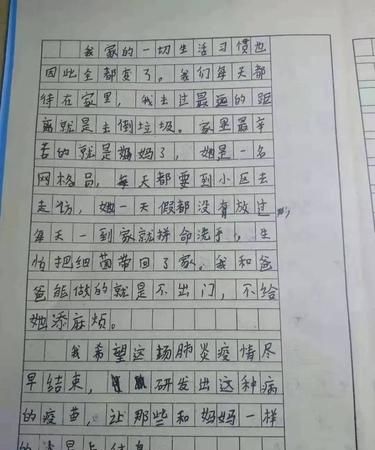 我家的一切生活习惯也
因此全都变了。我们每天都
待在家里，我去过最远的距
离就是去倒垃圾。家里最辛
苦的就是妈妈了，她是一名
网格员，每天都要到小区去
走访，她一天假都没有放过，
每天一到家就拼命洗手，生
怕把细菌带回了家。我和爸
爸能做的就是不出门，不给
她添麻烦。
我希望这场肺炎疫情尽
早结束，研发出这种病
的疫苗，让那些和妈妈一样